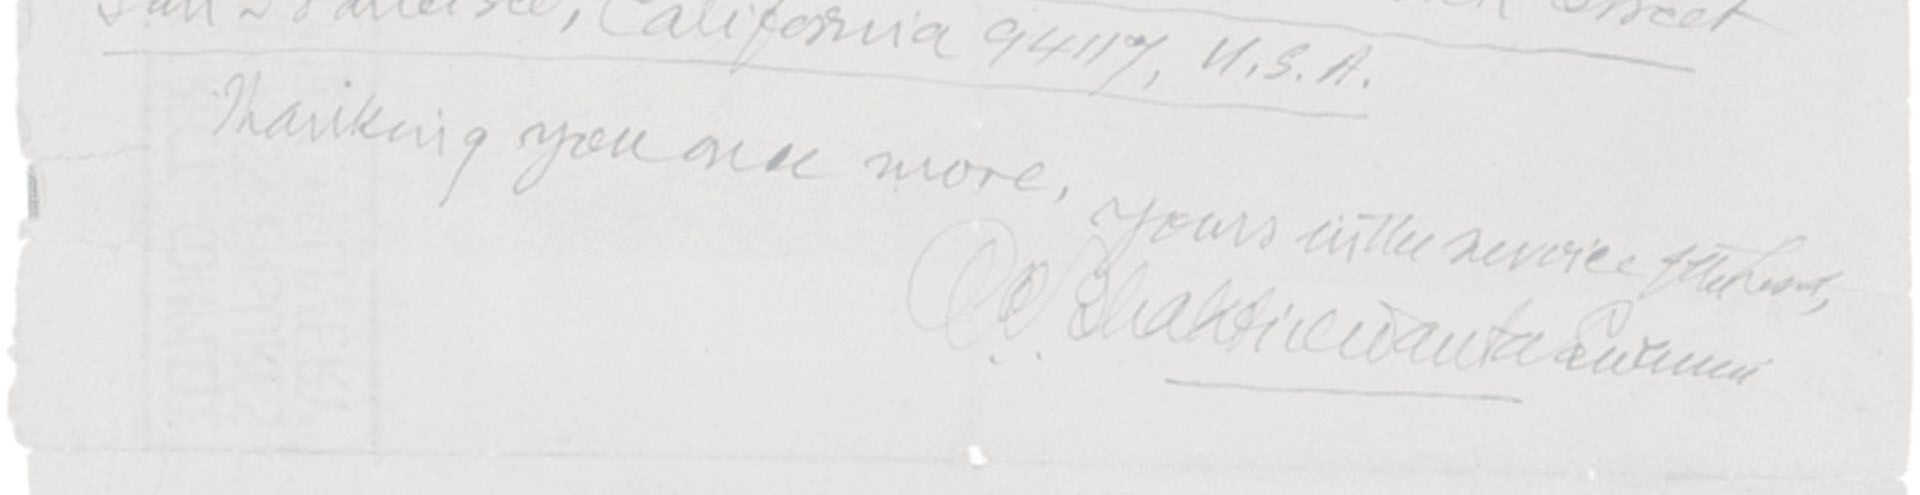 Street
San Francisco, California 94117, U.S.A.
Thanking you once more,
yours in the service of the Lord,
A.C. Bhaktivedanta Swami